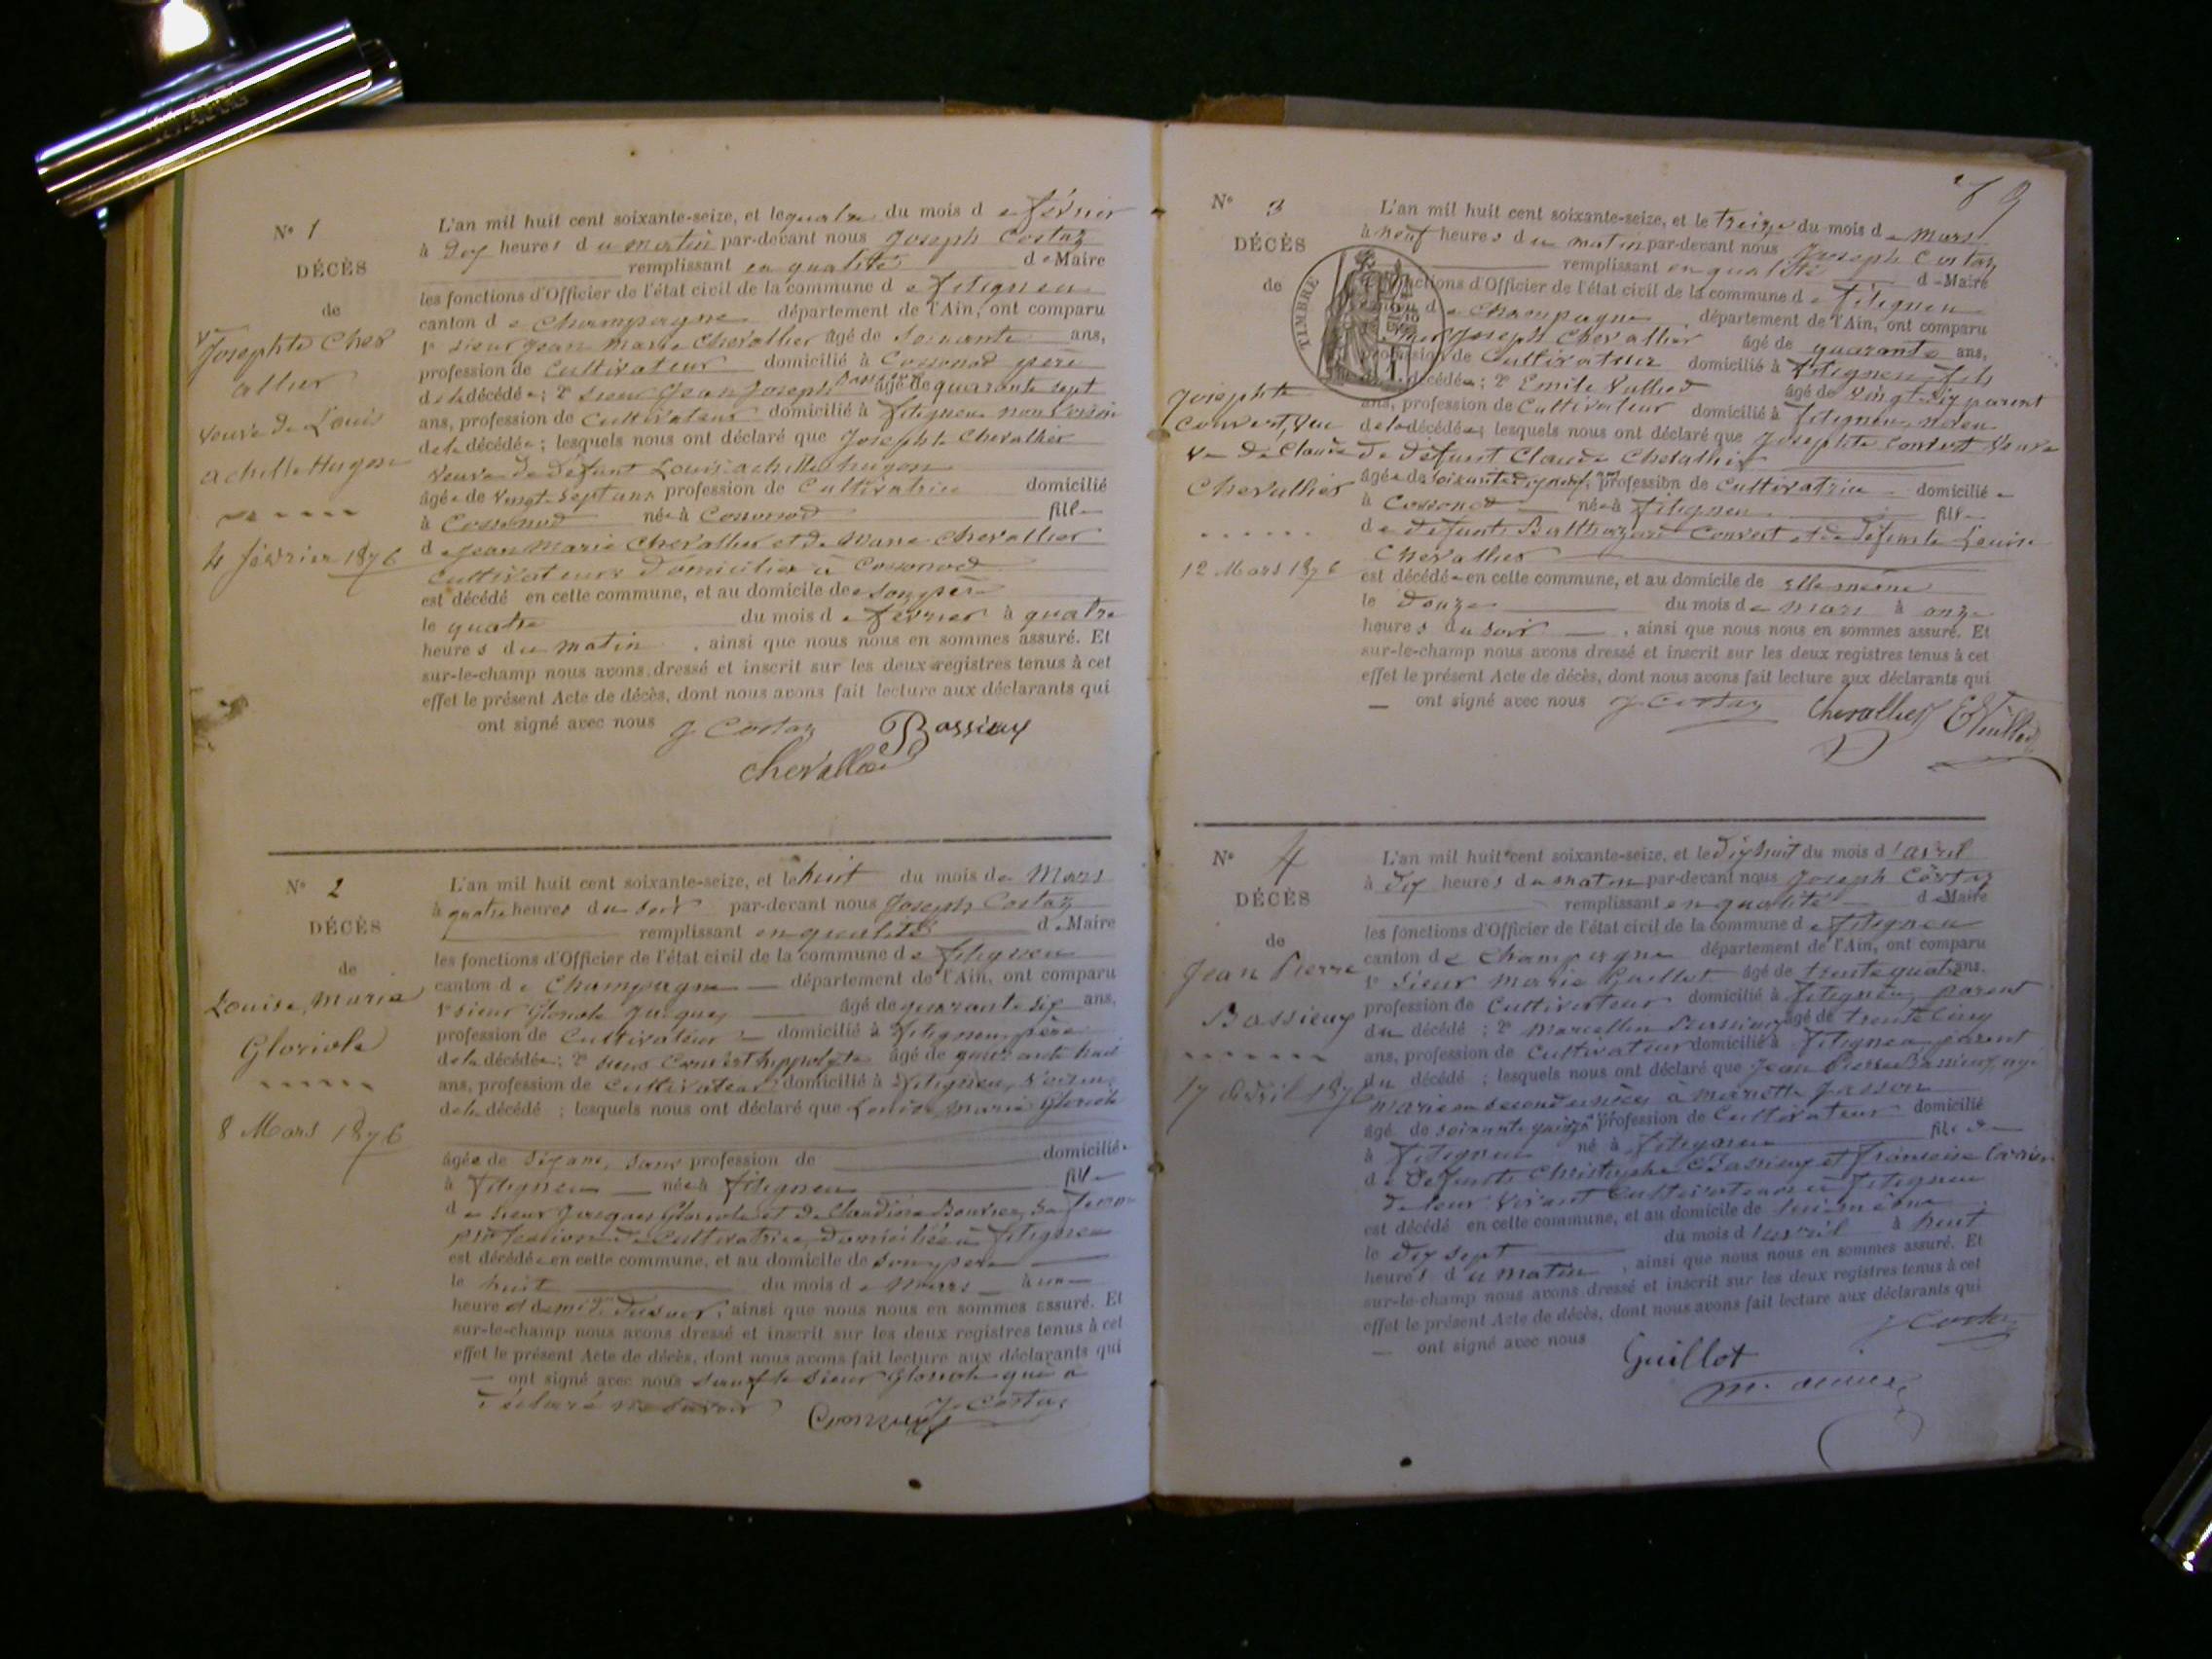 N° 1
DÉCÈS
de
Josephte Chev
allier
veuve de Louis
achille Hugon
4 février 1876
L'an mil huit cent soixante-seize, et le quatre du mois de février
à dix heures du matin par-devant nous Joseph Costaz
remplissant en qualité de Maire
les fonctions d'Officier de l'état civil de la commune de fitignieu
canton de Champagne département de l'Ain, ont comparu
1° sieur Jean Marie Chevallier âgé de soixante ans,
profession de cultivateur domicilié à Cossonod père
de la décédée; 2° sieur Jean Joseph Bassieux âgé de quarante sept
ans, profession de Cultivateur domicilié à fitignieu non voisin
de la décédée; lesquels nous ont déclaré que Josephte Chevallier
veuve de défunt Louis achille hugon
âgée de vingt-sept ans profession de Cultivatrice domicilié
à Cossonod née à Cossonod fille
de Jean Marie Chevallier et de Marie Chevallier
cultivateurs domiciliés à Cossonod
est décédé en cette commune, et au domicile de son père
le quatre du mois de février à quatre
heures du matin, ainsi que nous nous en sommes assuré. Et
sur-le-champ nous avons dressé et inscrit sur les deux registres tenus à cet
effet le présent Acte de décès, dont nous avons fait lecture aux déclarants qui
ont signé avec nous J. Costaz Bassieux
chevallier
N° 2
DÉCÈS
de
Louise, Marie
Gloriole
8 Mars 1876
L'an mil huit cent soixante-seize, et le huit du mois de Mars
à quatre heures du soir par-devant nous Joseph Costaz
remplissant en qualité de Maire
les fonctions d'Officier de l'état civil de la commune de fitignieu
canton de Champagne département de l'Ain, ont comparu
1° sieur Gloriole Jacques âgé de quarante six ans,
profession de Cultivateur domicilié à fitignieu, père
de la décédée; 2° sieur Convert hyppolyte âgé de quarante huit
ans, profession de cultivateur domicilié à fitignieu, voisin
de la décédé; lesquels nous ont déclaré que Louise Marie Gloriole
âgée de six ans, sans profession de domicilié
à fitignieu née à fitignieu fille
de sieur Jacques Gloriole et de Claudine Bouvier, sa femme
profession de cultivatrice, domiciliée à fitignieu
est décédée en cette commune, et au domicile de son père
le huit du mois de Mars à une
heure et demie du soir, ainsi que nous nous en sommes assuré. Et
sur-le-champ nous avons dressé et inscrit sur les deux registres tenus à cet
effet le présent Acte de décès, dont nous avons fait lecture aux déclarants qui
ont signé avec nous sauf le sieur Gloriole qui a
déclaré ne savoir J. Costaz
Convert
79
N° 3
DÉCÈS
de
TIMBRE
Josephte
Convert, veu
ve de Claude
Chevallier
12 Mars 1876
L'an mil huit cent soixante-seize, et le treize du mois de Mars
à neuf heures du matin par-devant nous Joseph Costaz
remplissant en qualité de Maire
fonctions d'Officier de l'état civil de la commune de fitignieu
canton de Champagne, département de l'Ain, ont comparu
Joseph Chevallier âgé de quarante ans,
profession de Cultivateur domicilié à fitignieu fils
décédée; 2° Emile Vullied âgé de vingt-six parent
ans, profession de Cultivateur domicilié à fitignieu neveu
de la décédée; lesquels nous ont déclaré que Josephte Convert Veuve
de défunt Claude Chevallier
âgée de soixante dix neuf ans, profession de Cultivatrice domiciliée
à Cossonod née à fitignieu fille
de défunts Balthazard Convert et de défunte Louise
Chevallier
est décédée en cette commune, et au domicile de elle même
le douze du mois de mars à onze
heures du soir, ainsi que nous nous en sommes assuré. Et
sur-le-champ nous avons dressé et inscrit sur les deux registres tenus à cet
effet le présent Acte de décès, dont nous avons fait lecture aux déclarants qui
ont signé avec nous J. Costaz Chevallier E Vullied
N° 4
DÉCÈS
de
Jean Pierre
Bassieux
17 avril 1876
L'an mil huit cent soixante-seize, et le dix huit du mois d'avril
à dix heures du matin par-devant nous Joseph Costaz
remplissant en qualité de Maire
les fonctions d'Officier de l'état civil de la commune de fitignieu
canton de Champagne département de l'Ain, ont comparu
1° sieur Marie Guillot âgé de trente quatre ans,
profession de Cultivateur domicilié à fitignieu, parent
du décédé; 2° Marcellin Bassieux âgé de trente cinq
ans, profession de Cultivateur domicilié à fitignieu parent
du décédé; lesquels nous ont déclaré que Jean Pierre Bassieux, age
marie en seconde noces à mariette Jasson
âgé de soixante quinze ans profession de Cultivateur domicilié
à fitignieu né à fitignieu fils de
de défunts Christophe Bassieux et francoise
de leur vivant Cultivateurs à fitignieu
est décédé en cette commune, et au domicile de lui même
le dix sept du mois d'avril à huit
heures du matin, ainsi que nous nous en sommes assuré. Et
sur-le-champ nous avons dressé et inscrit sur les deux registres tenus à cet
effet le présent Acte de décès, dont nous avons fait lecture aux déclarants qui
ont signé avec nous J. Costaz
Guillot